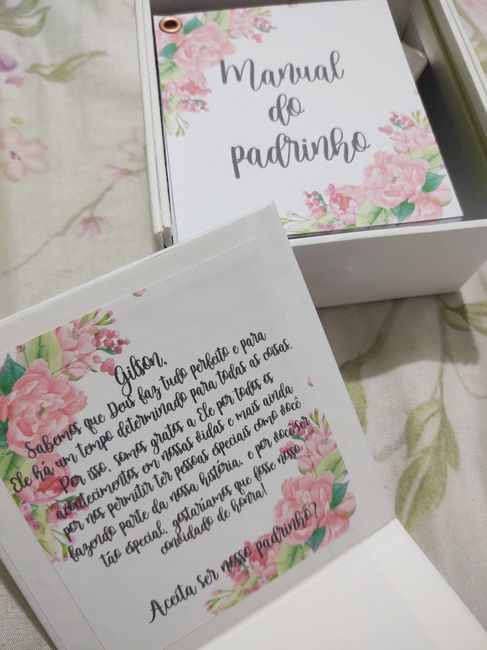 Manual
do
padrinho
Gilson,
Sabemos que Deus faz tudo perfeito e para
Ele há um tempo determinado para todas as coisas.
Por isso, somos gratos a Ele por todos os
acontecimentos em nossas vidas e mais ainda
por nos permitir ter pessoas especiais como você
fazendo parte da nossa história, e por você ser
tão especial, gostaríamos que fosse nosso
convidado de honra!
Aceita ser nosso padrinho?